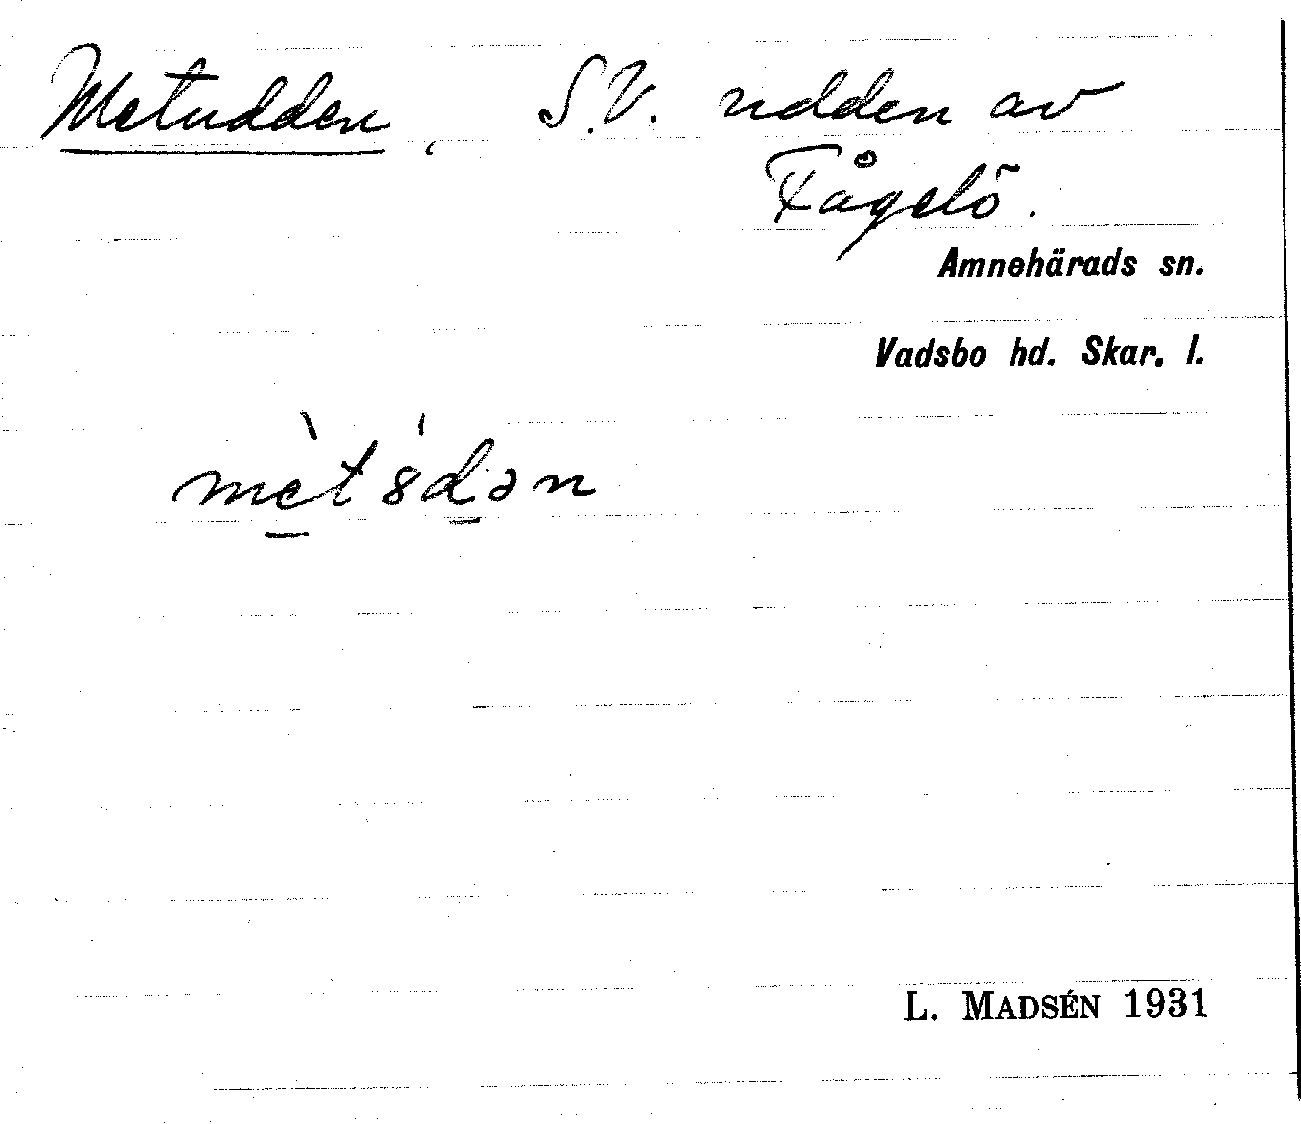 Metudden, S.V. udden av
Fågelö.
Amnehärads sn.
Vadsbo hd. Skar. l.
mèt8́dən
L. MADSÉN 1931